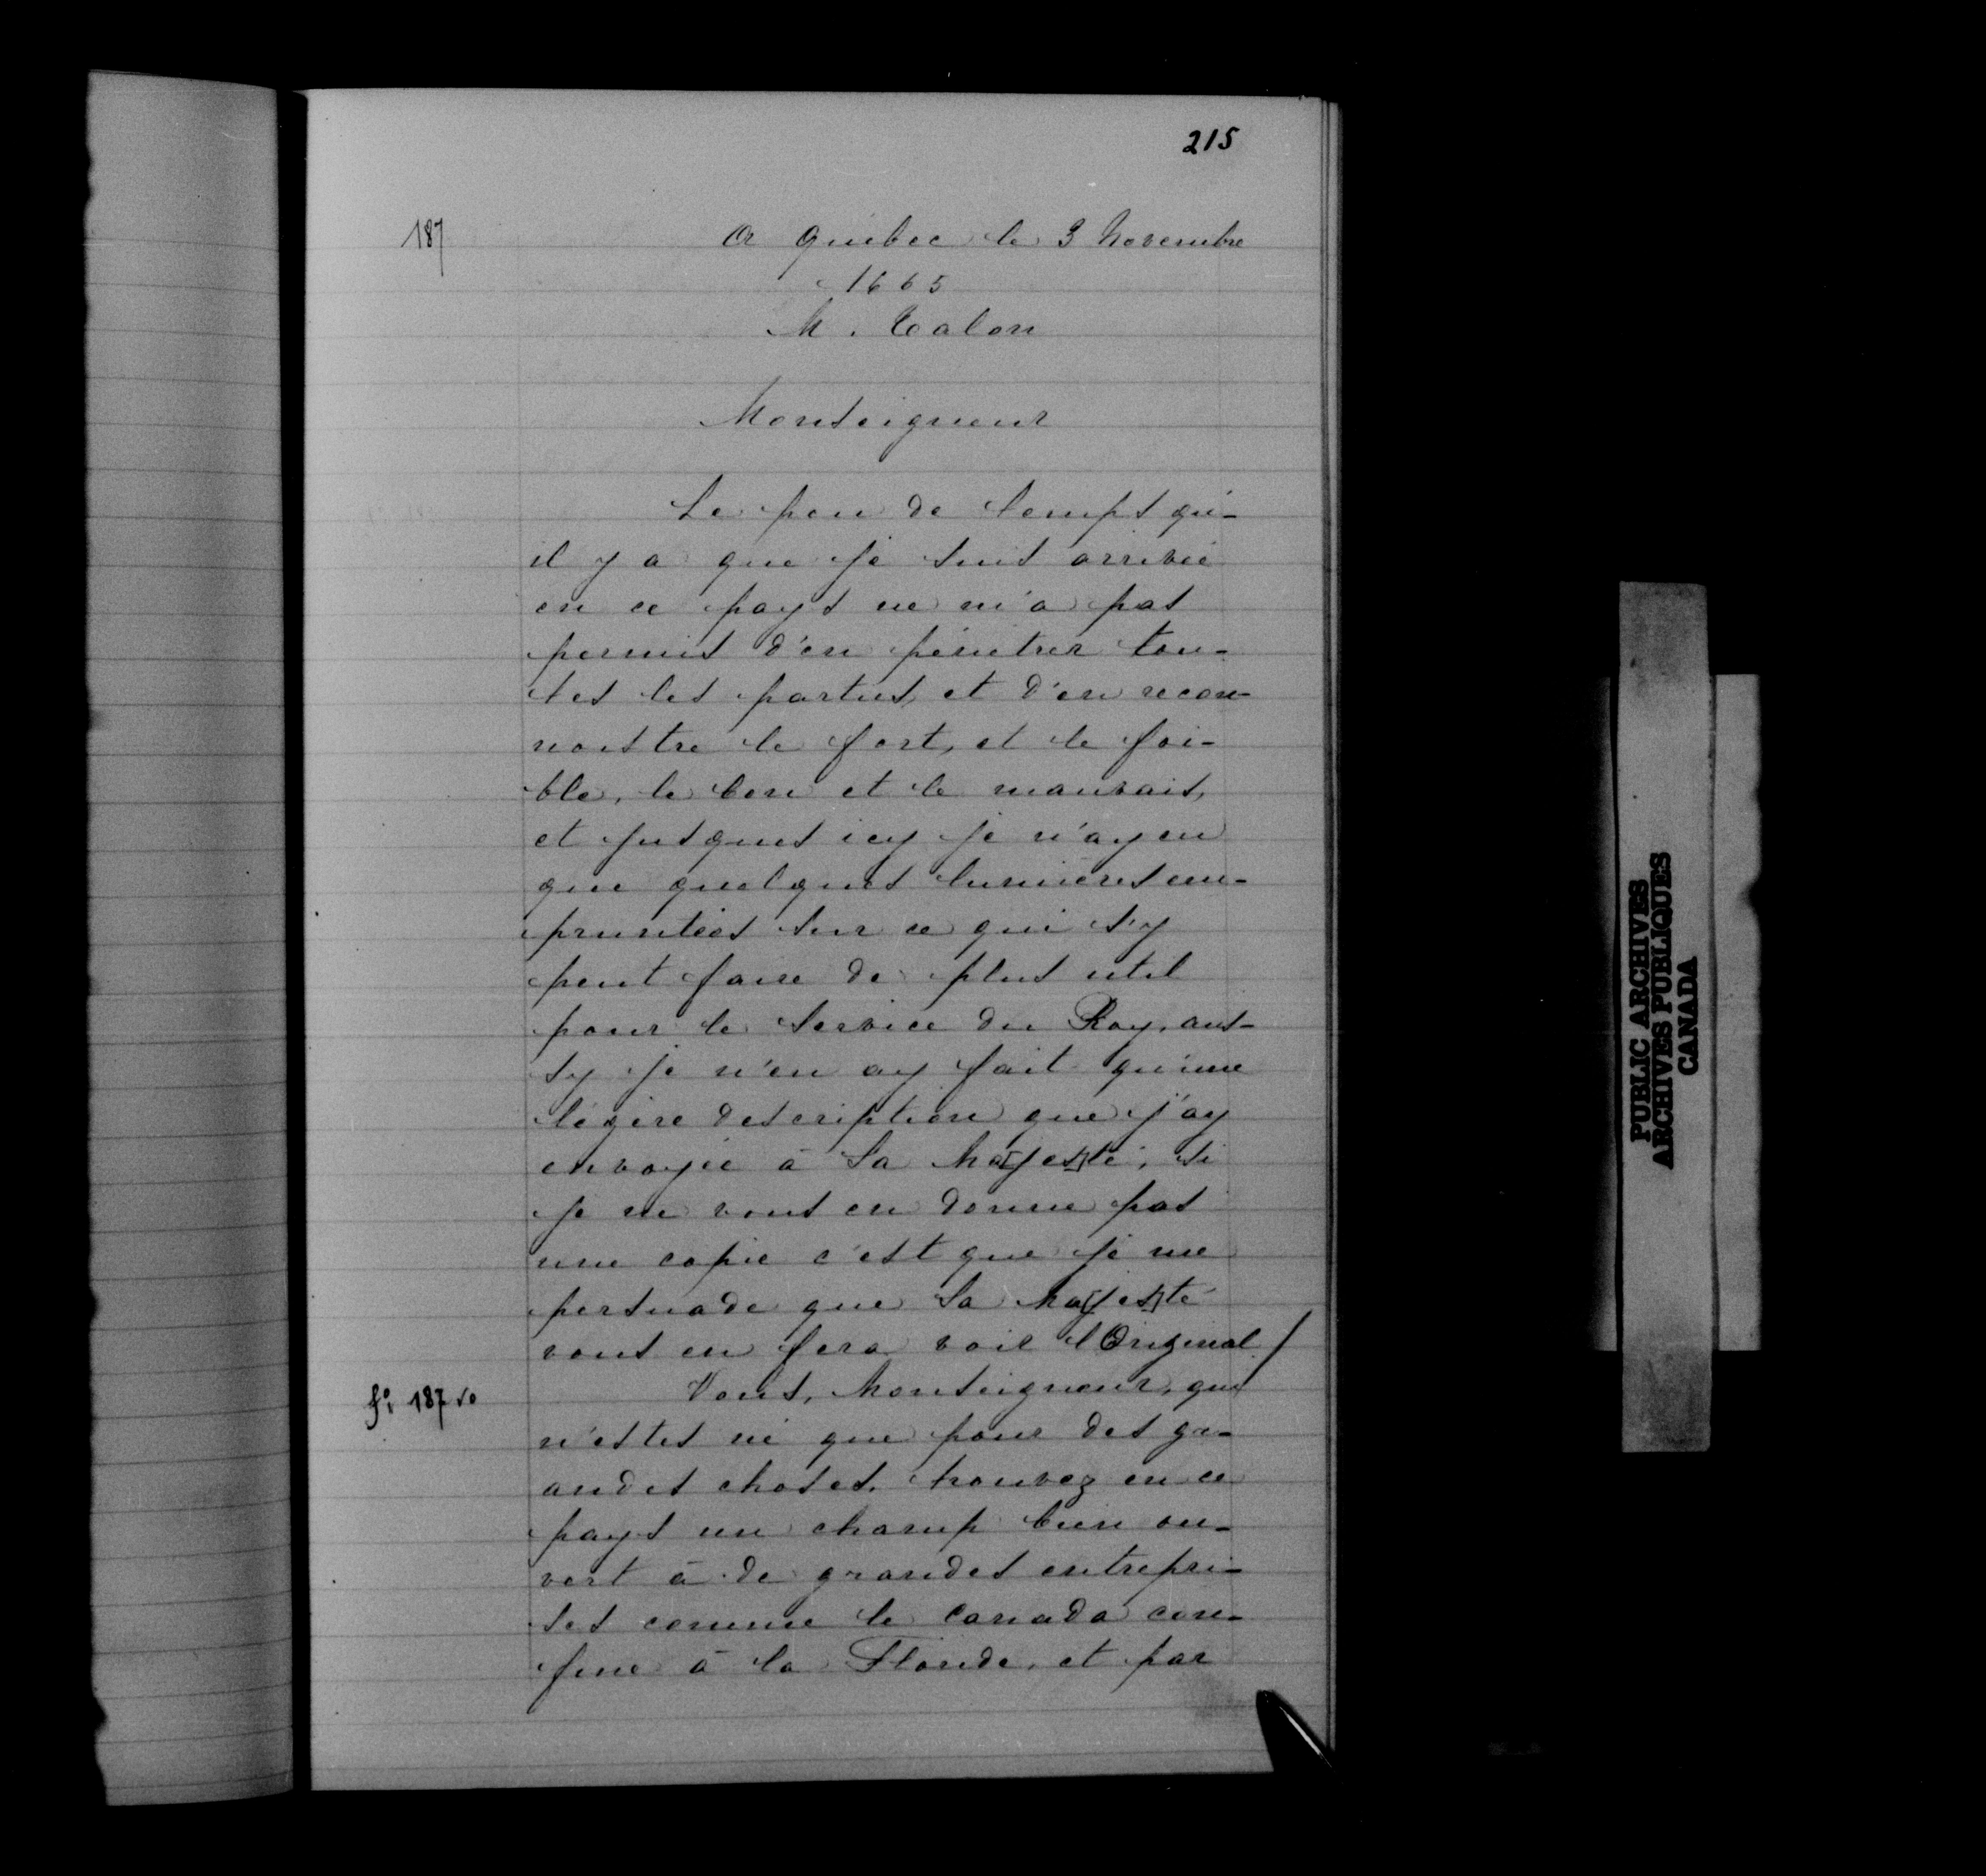 215
187
A Québec le 3 Novembre
1665
M. Talon
Monseigneur
Le peu de temps qu'-
il y a que je suis arrivé
en ce pays ne m'a pas
permis d'en pénétrer tou-
tes les parties, et d'en recon-
noistre le fort, et le foi-
ble, le bon et le mauvais,
et jusques icy je n'ay eu
que quelques lumières em-
pruntées sur ce qui s'y
peut faire de plus util
pour le service du Roy, aus-
sy je n'en ay fait qu'une
légère description que j'ay
envoyée à Sa Ma[jes]té; si
je ne vous en donne pas
une copie c'est que je me
persuade que Sa Ma[jes]té
vous en fera voir l'Original /
fo: 187 vo
Vous, Monseigneur, qui
n'estes né que pour des gr-
andes choses, trouvez en ce
pays un champ bien ou-
vert à de grandes entrepri-
ses comme le Canada con-
fine à la Floride, et par
PUBLIC ARCHIVES
ARCHIVES PUBLIQUES
CANADA